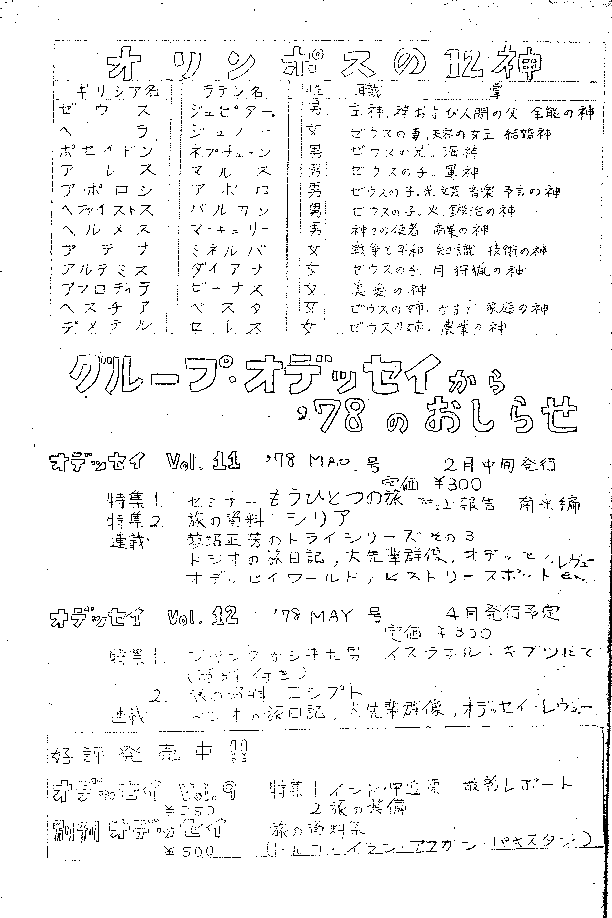 オリンポスの12神
ギリシア名 ラテン名 性 職 掌
ゼウス ジュピター 男 主神、神および人間の父 全能の神
ヘラ ジュノー 女 ゼウスの妻、天界の女王 結婚神
ポセイドン ネプチューン 男 ゼウスの兄、海神
アレス マルス 男 ゼウスの子、軍神
アポロン アポロ 男 ゼウスの子、光 文芸 音楽 予言の神
ヘファイストス バルカン 男 ゼウスの子、火、鍛冶の神
ヘルメス マーキュリー 男 神々の使者 商業の神
アテナ ミネルバ 女 戦争と平和 知識 技術の神
アルテミス ダイアナ 女 ゼウスの子、月 狩猟の神
アフロディテ ビーナス 女 美 愛の神
ヘスチア ベスタ 女 ゼウスの姉、かまど 家庭の神
デメテル セレス 女 ゼウスの姉、農業の神
グループ・オデッセイから
'78のおしらせ
オデッセイ Vol.11 '78 MAR. 号 2月中旬発行
定価 ¥300
特集1. セミナー もうひとつの旅 報告 南米編
特集2. 旅の資料 シリア
連載 のトライシリーズ その3
トシオの旅日記, 大先輩群像, オデッセイ レヴュー
オデッセイワールド, ヒストリースポット etc.
オデッセイ Vol.12 '78 MAY 号 4月発行予定
定価 ¥350
特集1. 来た男 イスラエル・キブツにて
2. 旅の資料 エジプト
連載 トシオの旅日記, 大先輩群像, オデッセイ・レヴュー
好評発売中!!
オデッセイ Vol.9 特集1 インド レポート
¥250 2 旅の装備
別刊 オデッセイ 旅の資料集
¥500 (トルコ・イラン・アフガン・パキスタン)